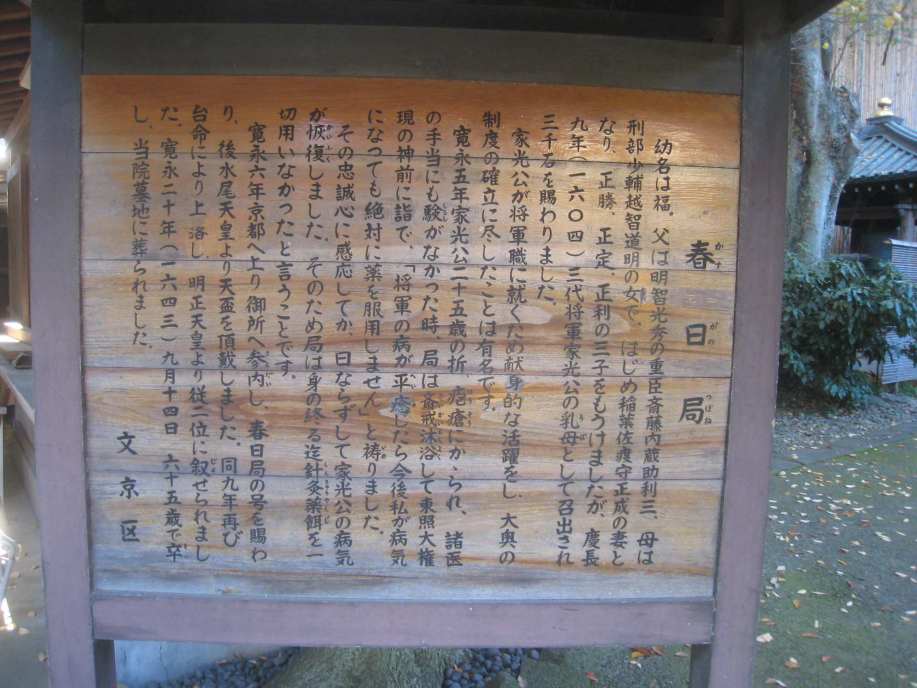 春日局
かすがのつぼね
幼名は福、父は明智光秀の重臣斎藤内蔵助利三、母は
刑部少輔越智道明の女で、はじめ稲葉佐渡守正成の妻と
なり、正勝、正定、正利の三子をもうけましたが、慶長
九年(一六〇四)三代将軍家光公の乳母として召出され
三千石を賜わりました。
家光公が将軍職に就くため献身的な活躍をし、大奥の
制度の確立に尽したことは有名です。
寛永五年家光公二十五歳の折、疱瘡にかゝられ、諸医
の手当にも験がなかった時、局は斎戒沐浴して東照大権
現の神前に詣で、「将軍の病が平癒したら今後私が病気
になっても絶対に薬を服用しません」と祷りました。
その忠誠心に感応してか、日ならずして家光公の病気
が恢復しました。そのため局は身の終る迄針灸薬餌を一
切用いなかったと言うことです。
寛永六年京都へ上り御所へ参内し、春日局の号を賜わ
り、後水尾天皇より天盃を頂戴しました。同九年再び
台命により上洛し、明正天皇より従二位に叙せられまし
た。寛永二十年(一六四三)九月十四日、六十五歳で卒
し、当院墓地に葬られました。
文京区